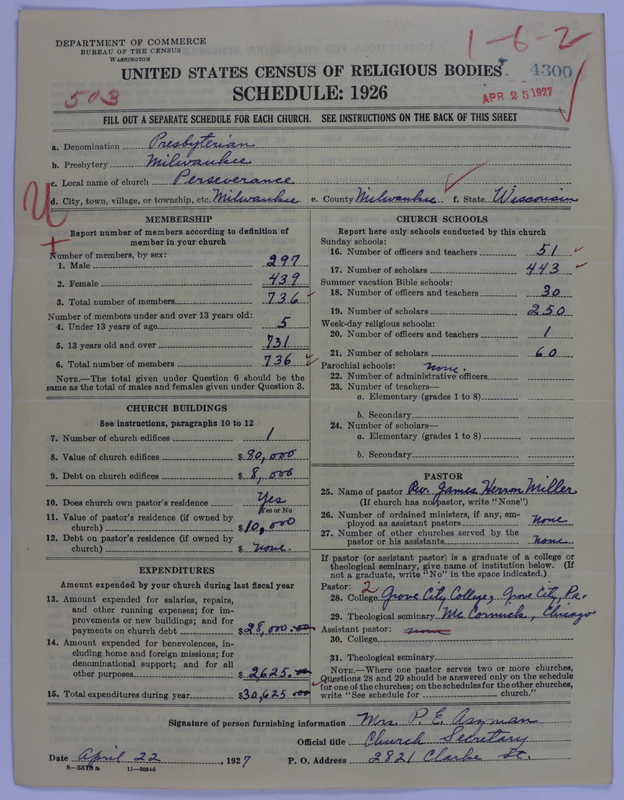 DEPARTMENT OF COMMERCE
BUREAU OF THE CENSUS
WASHINGTON
1-6-2
UNITED STATES CENSUS OF RELIGIOUS BODIES
4300
503
SCHEDULE: 1926
APR 25 1927
FILL OUT A SEPARATE SCHEDULE FOR EACH CHURCH. SEE INSTRUCTIONS ON THE BACK OF THIS SHEET
a. Denomination Presbyterian
b. Presbytery Milwaukee
c. Local name of church Perseverance
d. City, town, village, or township, etc. Milwaukee e. County Milwaukee f. State Wisconsin
U
MEMBERSHIP
Report number of members according to definition of
member in your church
Number of members, by sex:
1. Male 297
2. Female 439
3. Total number of members 736
Number of members under and over 13 years old:
4. Under 13 years of age 5
5. 13 years old and over 731
6. Total number of members 736
NOTE.—The total given under Question 6 should be the
same as the total of males and females given under Question 3.
CHURCH BUILDINGS
See instructions, paragraphs 10 to 12
7. Number of church edifices 1
8. Value of church edifices $80,000
9. Debt on church edifices $8,000
10. Does church own pastor's residence Yes
Yes or No
11. Value of pastor's residence (if owned by
church) $10,000
12. Debt on pastor's residence (if owned by
church) $none.
EXPENDITURES
Amount expended by your church during last fiscal year
13. Amount expended for salaries, repairs,
and other running expenses; for im-
provements or new buildings; and for
payments on church debt $28,000.00
14. Amount expended for benevolences, in-
cluding home and foreign missions; for
denominational support; and for all
other purposes $2625.00
15. Total expenditures during year $30,625.00
CHURCH SCHOOLS
Report here only schools conducted by this church
Sunday schools:
16. Number of officers and teachers 51
17. Number of scholars 443
Summer vacation Bible schools:
18. Number of officers and teachers 30
19. Number of scholars 250
Week-day religious schools:
20. Number of officers and teachers 1
21. Number of scholars 60
Parochial schools: none.
22. Number of administrative officers
23. Number of teachers—
a. Elementary (grades 1 to 8)
b. Secondary
24. Number of scholars—
a. Elementary (grades 1 to 8)
b. Secondary
PASTOR
25. Name of pastor Rev. James Herron Miller
(If church has no pastor, write "None")
26. Number of ordained ministers, if any, em-
ployed as assistant pastors none
27. Number of other churches served by the
pastor or his assistants none.
If pastor (or assistant pastor) is a graduate of a college or
theological seminary, give name of institution below. (If
not a graduate, write "No" in the space indicated.)
Pastor: 2
28. College Grove City College, Grove City, Pa.
29. Theological seminary McCormick, Chicago
Assistant pastor: none
30. College
31. Theological seminary
NOTE.—Where one pastor serves two or more churches,
Questions 28 and 29 should be answered only on the schedule
for one of the churches; on the schedules for the other churches,
write "See schedule for church."
Signature of person furnishing information Mrs. P. E. Assman
Official title Church Secretary
Date April 22, 1927 P. O. Address 2821 Clarke St.
8-5518a 11-9054d